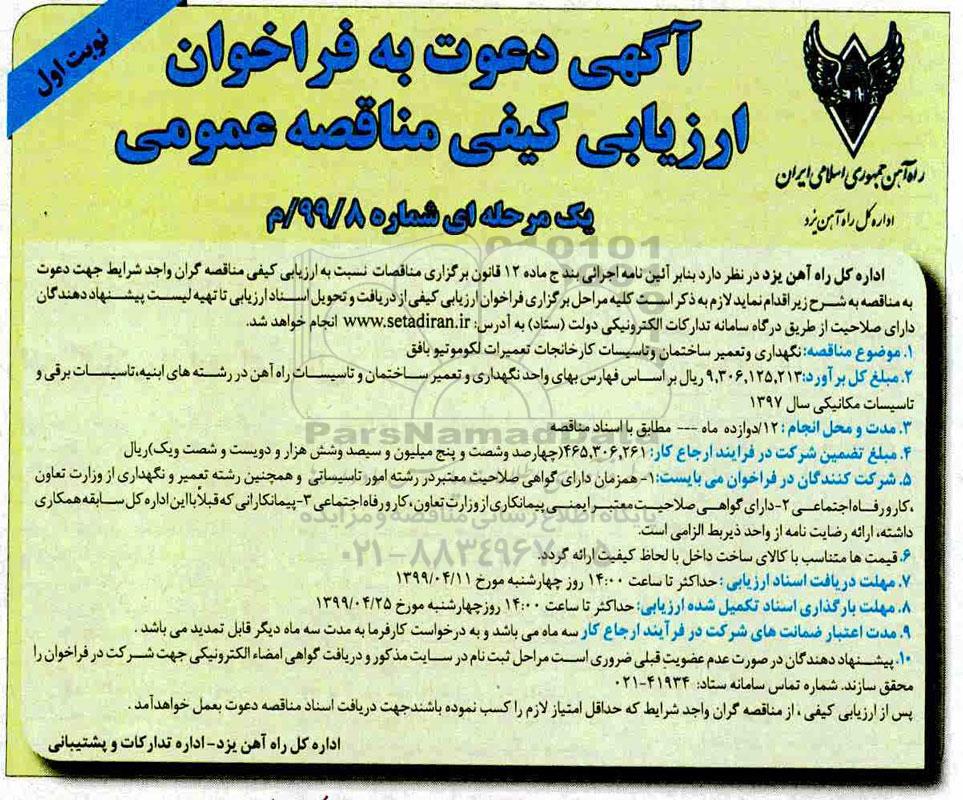 نوبت اول
آگهی دعوت به فراخوان
ارزیابی کیفی مناقصه عمومی
یک مرحله ای شماره ۹۹/۸/م
راه آهن جمهوری اسلامی ایران
اداره کل راه آهن یزد
اداره کل راه آهن یزد در نظر دارد بنابر آئین نامه اجرائی بند ج ماده ۱۲ قانون برگزاری مناقصات نسبت به ارزیابی کیفی مناقصه گران واجد شرایط جهت دعوت
به مناقصه به شرح زیر اقدام نماید لازم به ذکر است کلیه مراحل برگزاری فراخوان ارزیابی کیفی از دریافت و تحویل اسناد ارزیابی تا تهیه لیست پیشنهاد دهندگان
دارای صلاحیت از طریق درگاه سامانه تدارکات الکترونیکی دولت (ستاد) به آدرس: www.setadiran.ir انجام خواهد شد.
۱. موضوع مناقصه: نگهداری وتعمیر ساختمان وتاسیسات کارخانجات تعمیرات لکوموتیو بافق
۲. مبلغ کل برآورد: ۹,۳۰۶,۱۲۵,۲۱۳ ریال بر اساس فهارس بهای واحد نگهداری و تعمیر ساختمان و تاسیسات راه آهن در رشته های ابنیه،تاسیسات برقی و
تاسیسات مکانیکی سال ۱۳۹۷
۳. مدت و محل انجام : ۱۲/دوازده ماه --- مطابق با اسناد مناقصه
۴. مبلغ تضمین شرکت در فرایند ارجاع کار: ۴۶۵,۳۰۶,۲۶۱(چهارصد وشصت و پنج میلیون و سیصد وشش هزار و دویست و شصت ویک)ریال
۵. شرکت کنندگان در فراخوان می بایست: ۱- همزمان دارای گواهی صلاحیت معتبردر رشته امور تاسیساتی و همچنین رشته تعمیر و نگهداری از وزارت تعاون
،کار ورفاه اجتماعی ۲-دارای گواهی صلاحیت معتبر ایمنی پیمانکاری از وزارت تعاون، کار ورفاه اجتماعی ۳-پیمانکارانی که قبلاً بااین اداره کل سابقه همکاری
داشته، ارائه رضایت نامه از واحد ذیربط الزامی است.
۶. قیمت ها متناسب با کالای ساخت داخل با لحاظ کیفیت ارائه گردد.
۷. مهلت دریافت اسناد ارزیابی : حداکثر تا ساعت ۱۴:۰۰ روز چهارشنبه مورخ ۱۳۹۹/۰۴/۱۱
۸. مهلت بارگذاری اسناد تکمیل شده ارزیابی: حداکثر تا ساعت ۱۴:۰۰ روزچهارشنبه مورخ ۱۳۹۹/۰۴/۲۵
۹. مدت اعتبار ضمانت های شرکت در فرآیند ارجاع کار سه ماه می باشد و به درخواست کارفرما به مدت سه ماه دیگر قابل تمدید می باشد .
۱۰. پیشنهاد دهندگان در صورت عدم عضویت قبلی ضروری است مراحل ثبت نام در سایت مذکور و دریافت گواهی امضاء الکترونیکی جهت شرکت در فراخوان را
محقق سازند. شماره تماس سامانه ستاد: ۴۱۹۳۴-۰۲۱
پس از ارزیابی کیفی ، از مناقصه گران واجد شرایط که حداقل امتیاز لازم را کسب نموده باشندجهت دریافت اسناد مناقصه دعوت بعمل خواهدآمد .
اداره کل راه آهن یزد-اداره تدارکات و پشتیبانی
ParsNamadData
پایگاه اطلاع رسانی مناقصه و مزایده